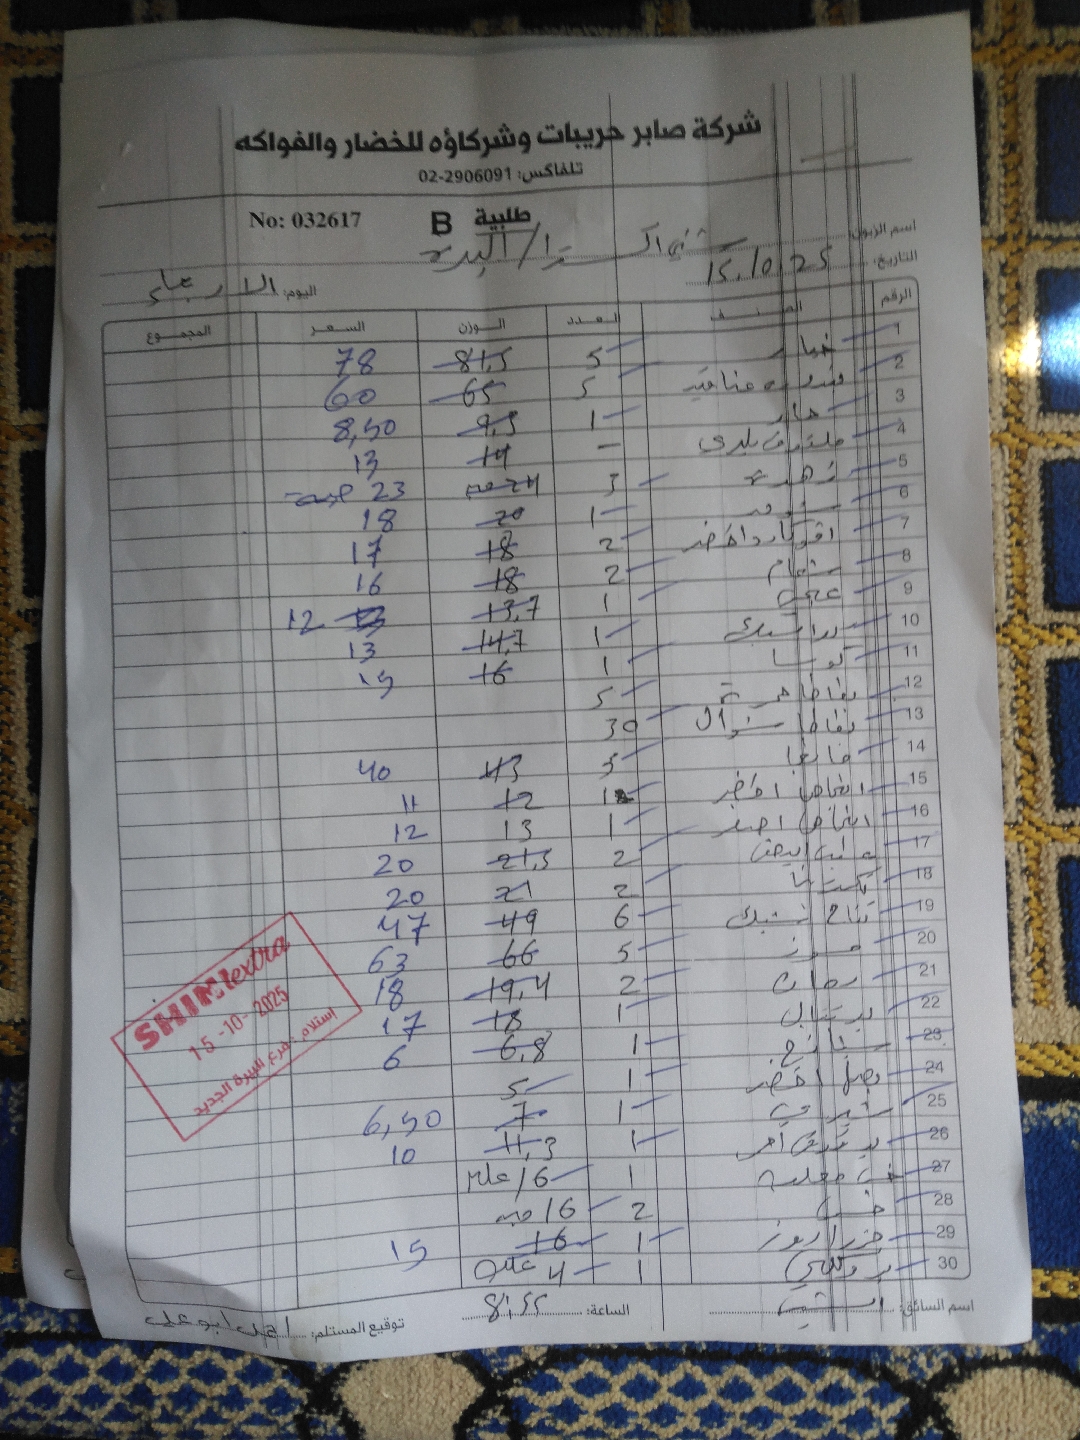 شركة صابر حريبات وشركاؤه للخضار والفواكه
تلفاكس: 02-2906091
No: 032617 B طلبية
اسم الزبون: شني اكسترا / البيرة
التاريخ: 15.10.25
اليوم: الاربعاء
الرقم الصنف العدد الوزن السعر المجموع
1 خيار 5 81,5 78
2 بندورة عناقيد 5 65 60
3 حار 1 9,5 8,50
4 بلدي - 14 13
5 زهرة 3 24 23
6 1 20 18
7 افوكادو اخضر 2 18 17
8 شمام 2 18 16
9 1 13,7 12
10 1 14,7 13
11 كوسا 1 16 15
12 بطاطا 5
13 بطاطا 30
14 مانجا 3 43 40
15 اجاص اخضر 1 12 11
16 اجاص احمر 1 13 12
17 عنب ابيض 2 21,5 20
18 2 21 20
19 تفاح 6 49 47
20 موز 5 66 63
21 رمان 2 19,4 18
22 برتقال 1 18 17
23 1 6,8 6
24 بصل اخضر 1 5
25 1 7 6,50
26 احمر 1 11,3 10
27 خس 1 16/علبة
28 خس 2 16/حبة
29 1 16 15
30 بروكلي 1 4
اسم السائق:
الساعة: 8:55
توقيع المستلم: ابو علي
SHINI extra
15-10-2025
إستلام - فرع البيرة الجديد